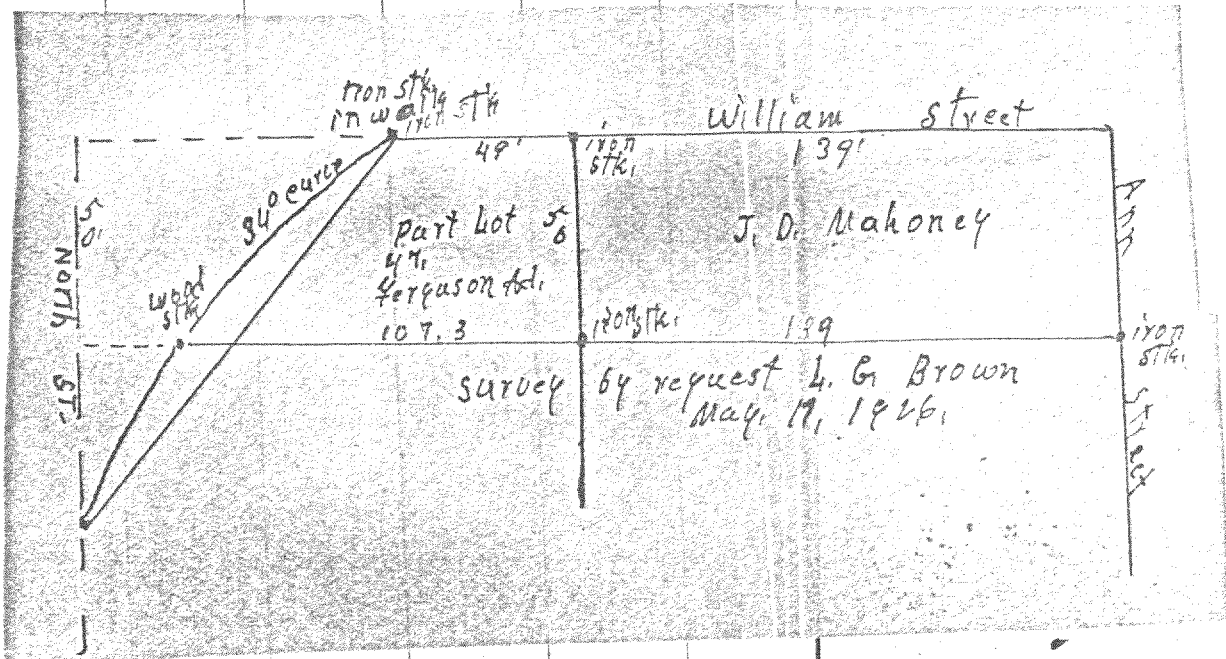 iron stk.
in walk
iron stk
William Street
49'
iron
stk.
139'
34° curve
50'
North St.
Part Lot
47,
Ferguson Ad.
50
J. D. Mahoney
Ann Street
wood
stk
107.3
iron stk.
139
iron
stk.
Survey by request L. G. Brown
May. 19, 1926.